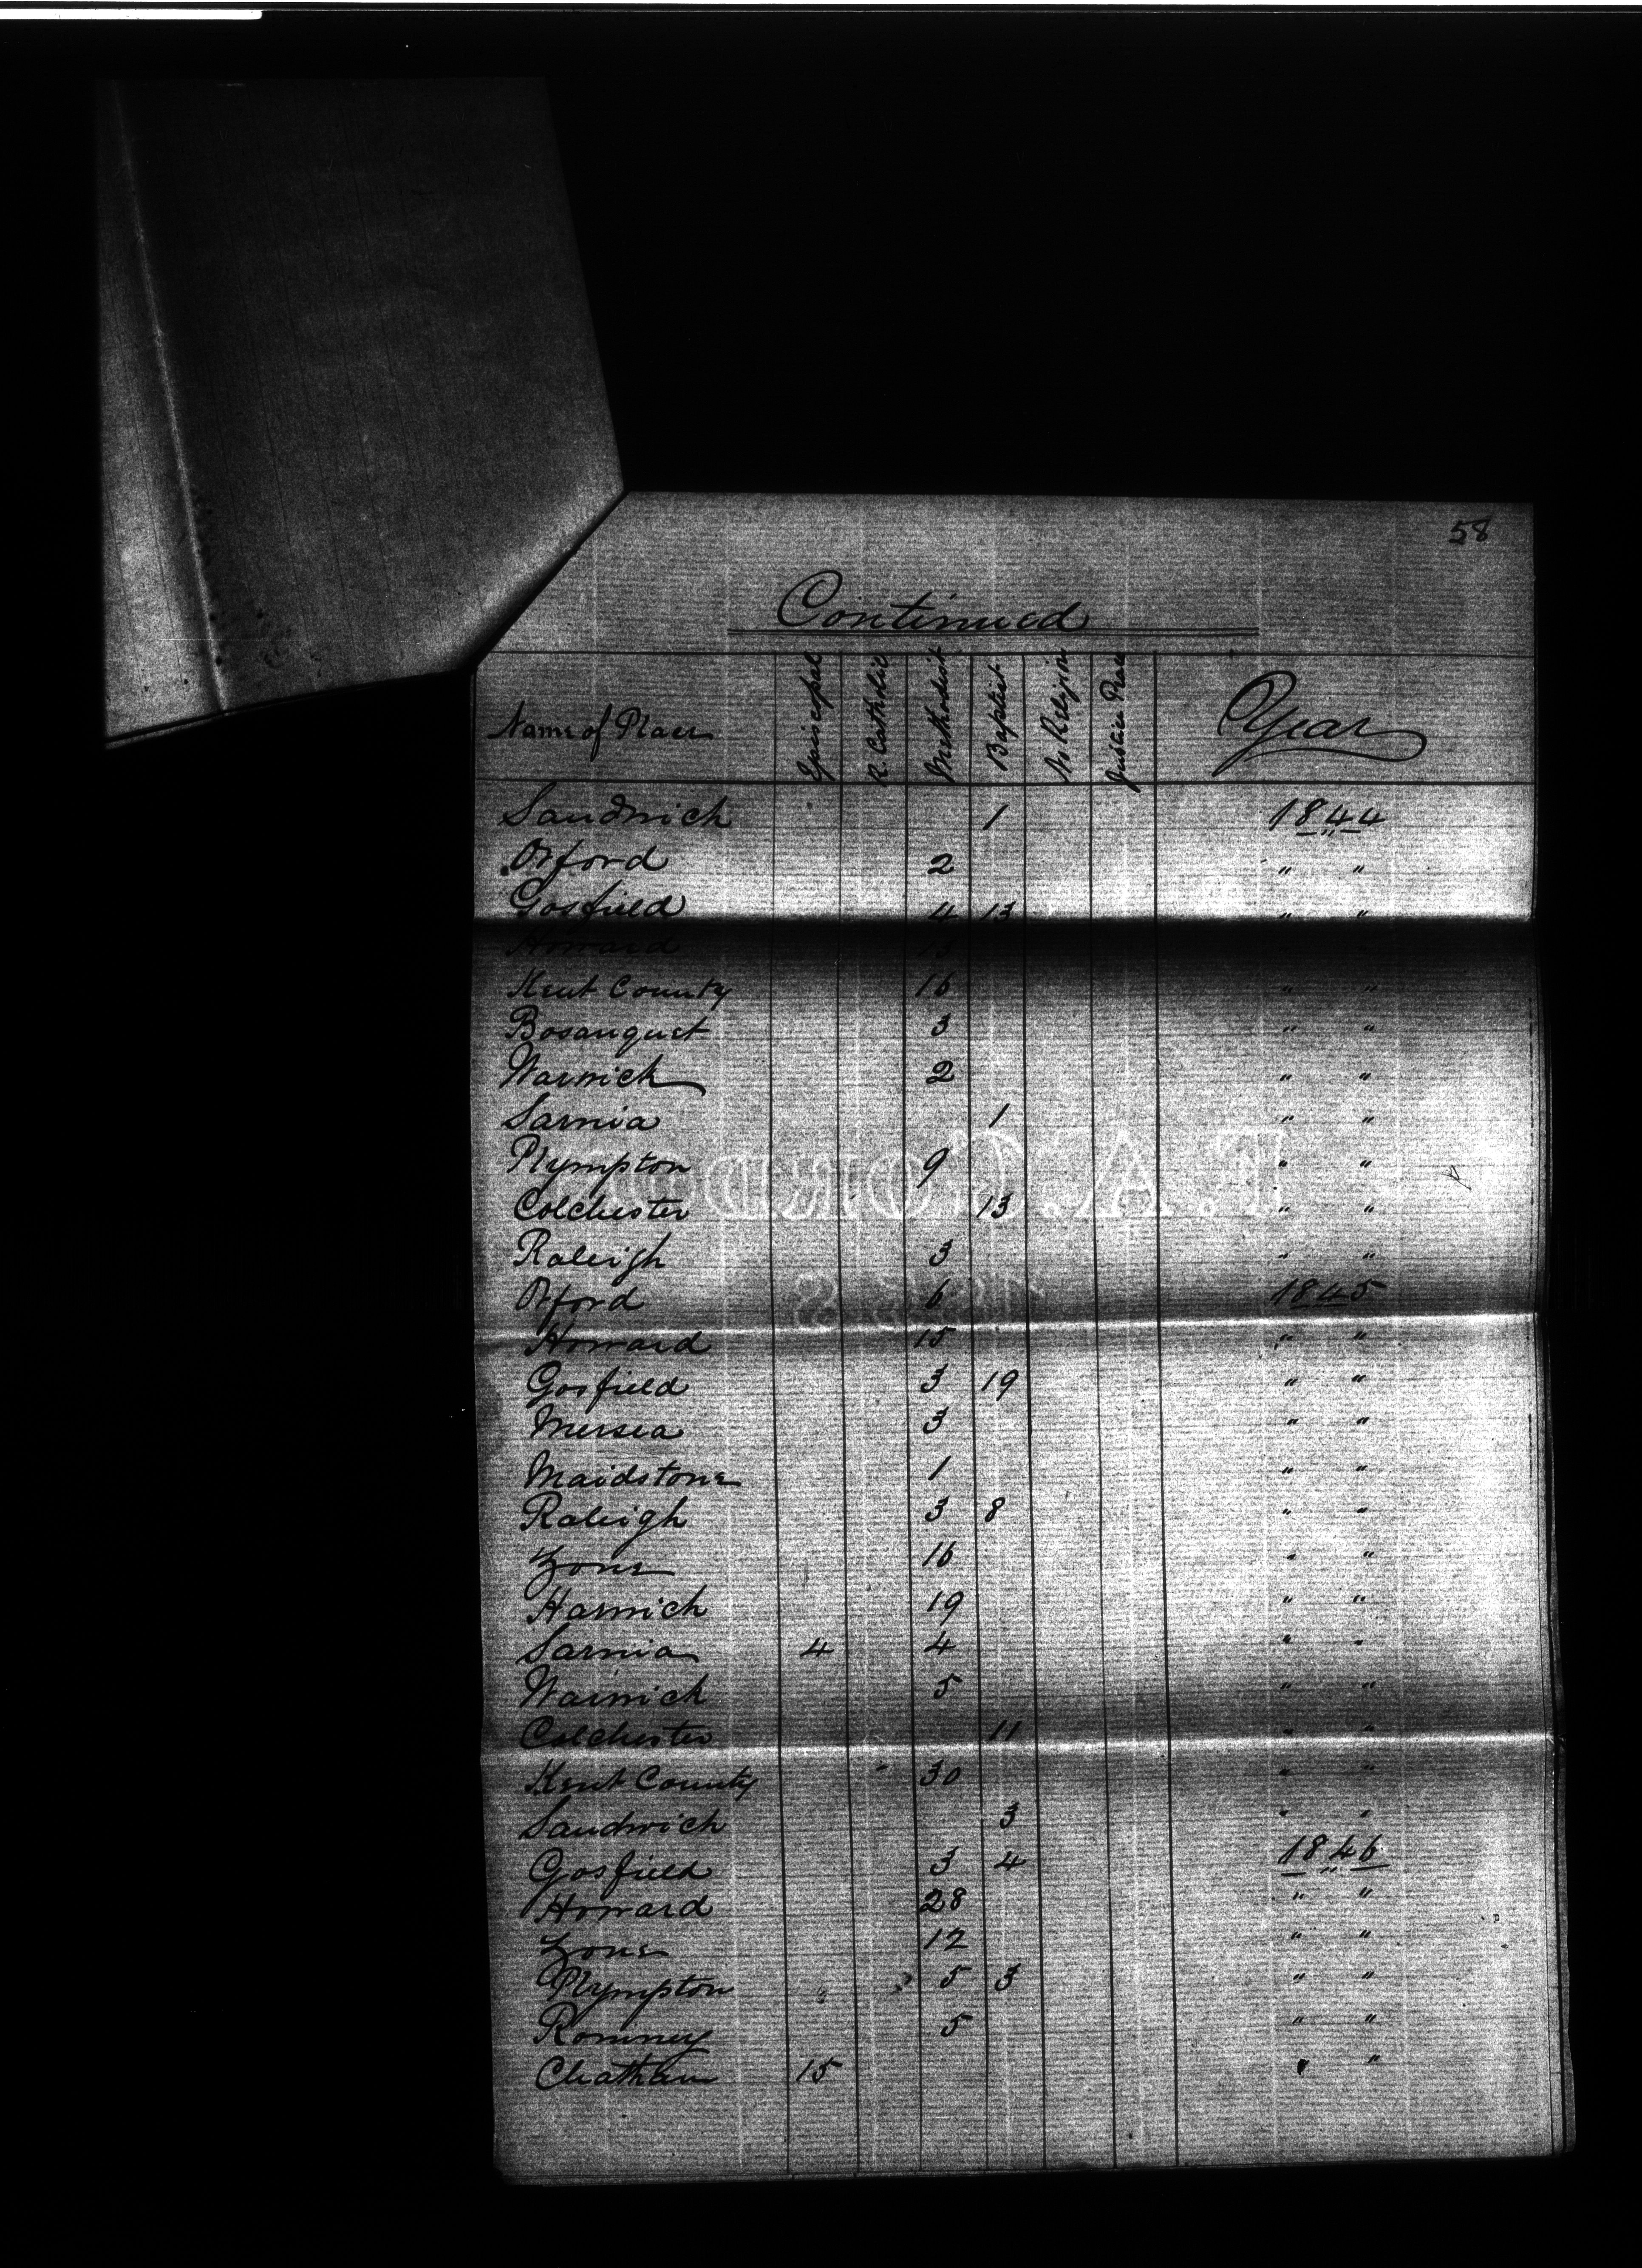 58
Continued
Name of Place Episcopal R. Catholic Methodist Baptist No Religion Justice Peace Year
Sandwich 1 1844
Orford 2 " "
Gosfield 4 13 " "
Howard 13
Kent County 16 " "
Bosanquet 3 " "
Warwick 2 " "
Sarnia 1 " "
Plympton 9 " "
Colchester 13 " "
Raleigh 3 " "
Orford 6 1845
Howard 15 " "
Gosfield 3 19 " "
Mersea 3 " "
Maidstone 1 " "
Raleigh 3 8 " "
Zone 16 " "
Harwich 19 " "
Sarnia 4 4 " "
Warwick 5 " "
Colchester 11 " "
Kent County 30 " "
Sandwich 3 " "
Gosfield 3 4 1846
Howard 28 " "
Zone 12 " "
Plympton 5 3 " "
Romney 5 " "
Chatham 15 " "